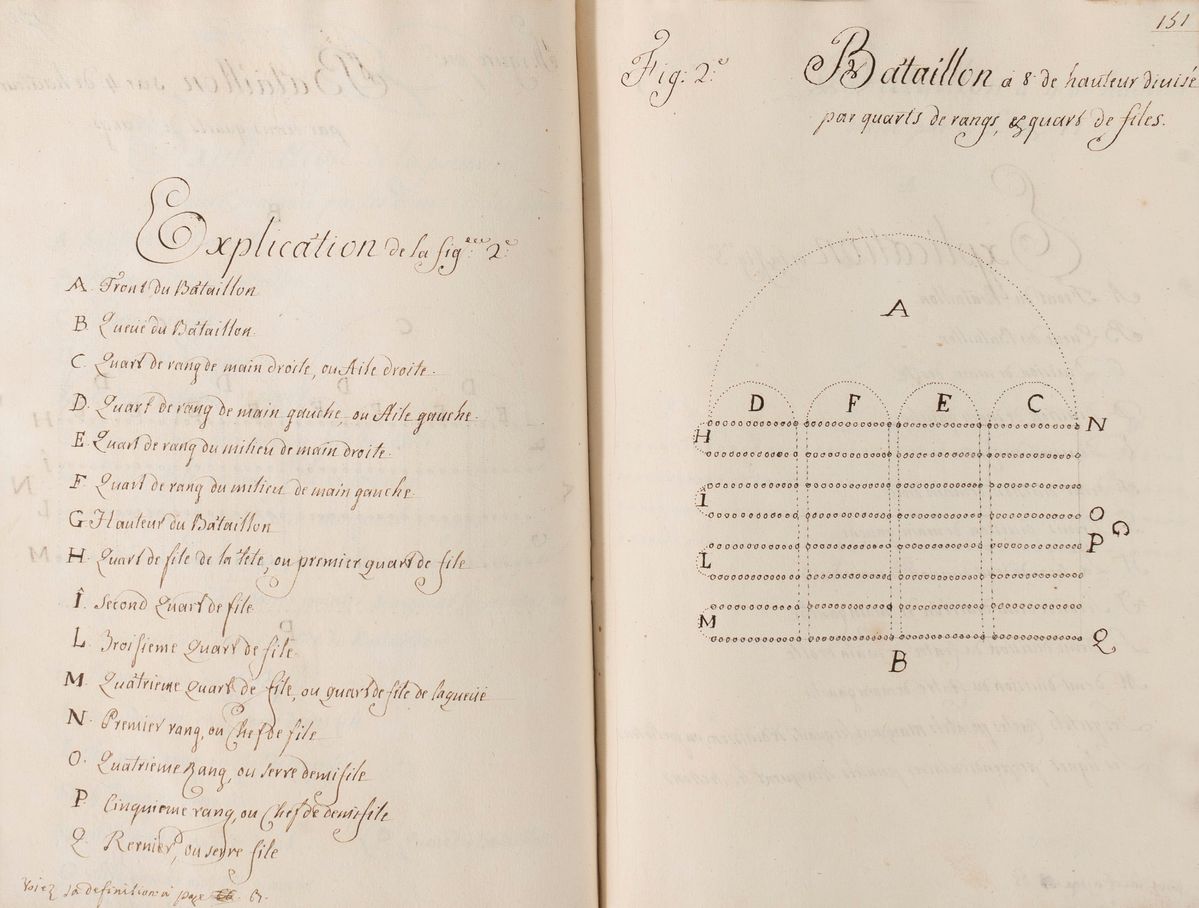 Explication de la fig.re 2.e
A. Front du Bâtaillon
B. Queüe du Bâtaillon.
C. Quart de rang de main droite, ou Aile droite.
D. Quart de rang de main gauche, ou Aile gauche.
E. Quart de rang du milieu de main droite.
F. Quart de rang du milieu de main gauche.
G Hauteur du Bâtaillon
H. Quart de file de la tête, ou premier quart de file
Î. Second Quart de file
L. Troisieme Quart de file.
M. Quâtrieme Quart de file, ou quart de file de la queüe
N. Premier rang, ou Chef de file
O. Quatrieme Rang, ou serre demi file
P. Cinquieme rang, ou Chef de demi file
Q. Rernier, ou serre file
Voiez sa definition à page
151
Fig. 2.e
Bâtaillon à 8 de hauteur divisé
par quarts de rangs, & quart de files.
A
D F E C
H N
Î O
G
L P
M Q
B